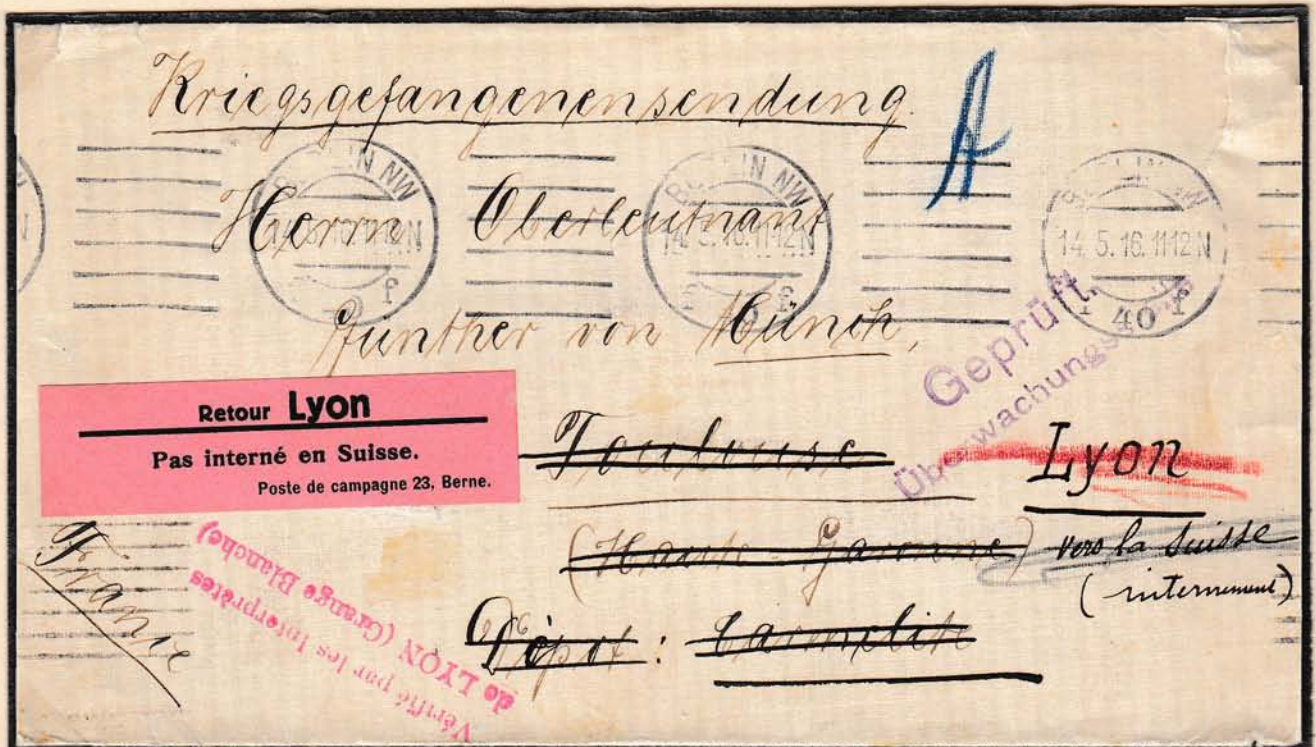 Kriegsgefangenensendung.
A
BERLIN NW
14.5.16.11-12N
BERLIN NW
14.5.16.11-12N
BERLIN NW
14.5.16.11-12N
* 40 f
Herrn Oberleutnant
Günther von Münch,
Geprüft.
Retour Lyon
Pas interné en Suisse.
Poste de campagne 23, Berne.
Toulouse
Lyon
(Haute-Garonne)
vers la Suisse
(internement)
Dépôt: Carmelite
France
Vérifié par les Interprètes
de LYON (Grange Blanche)